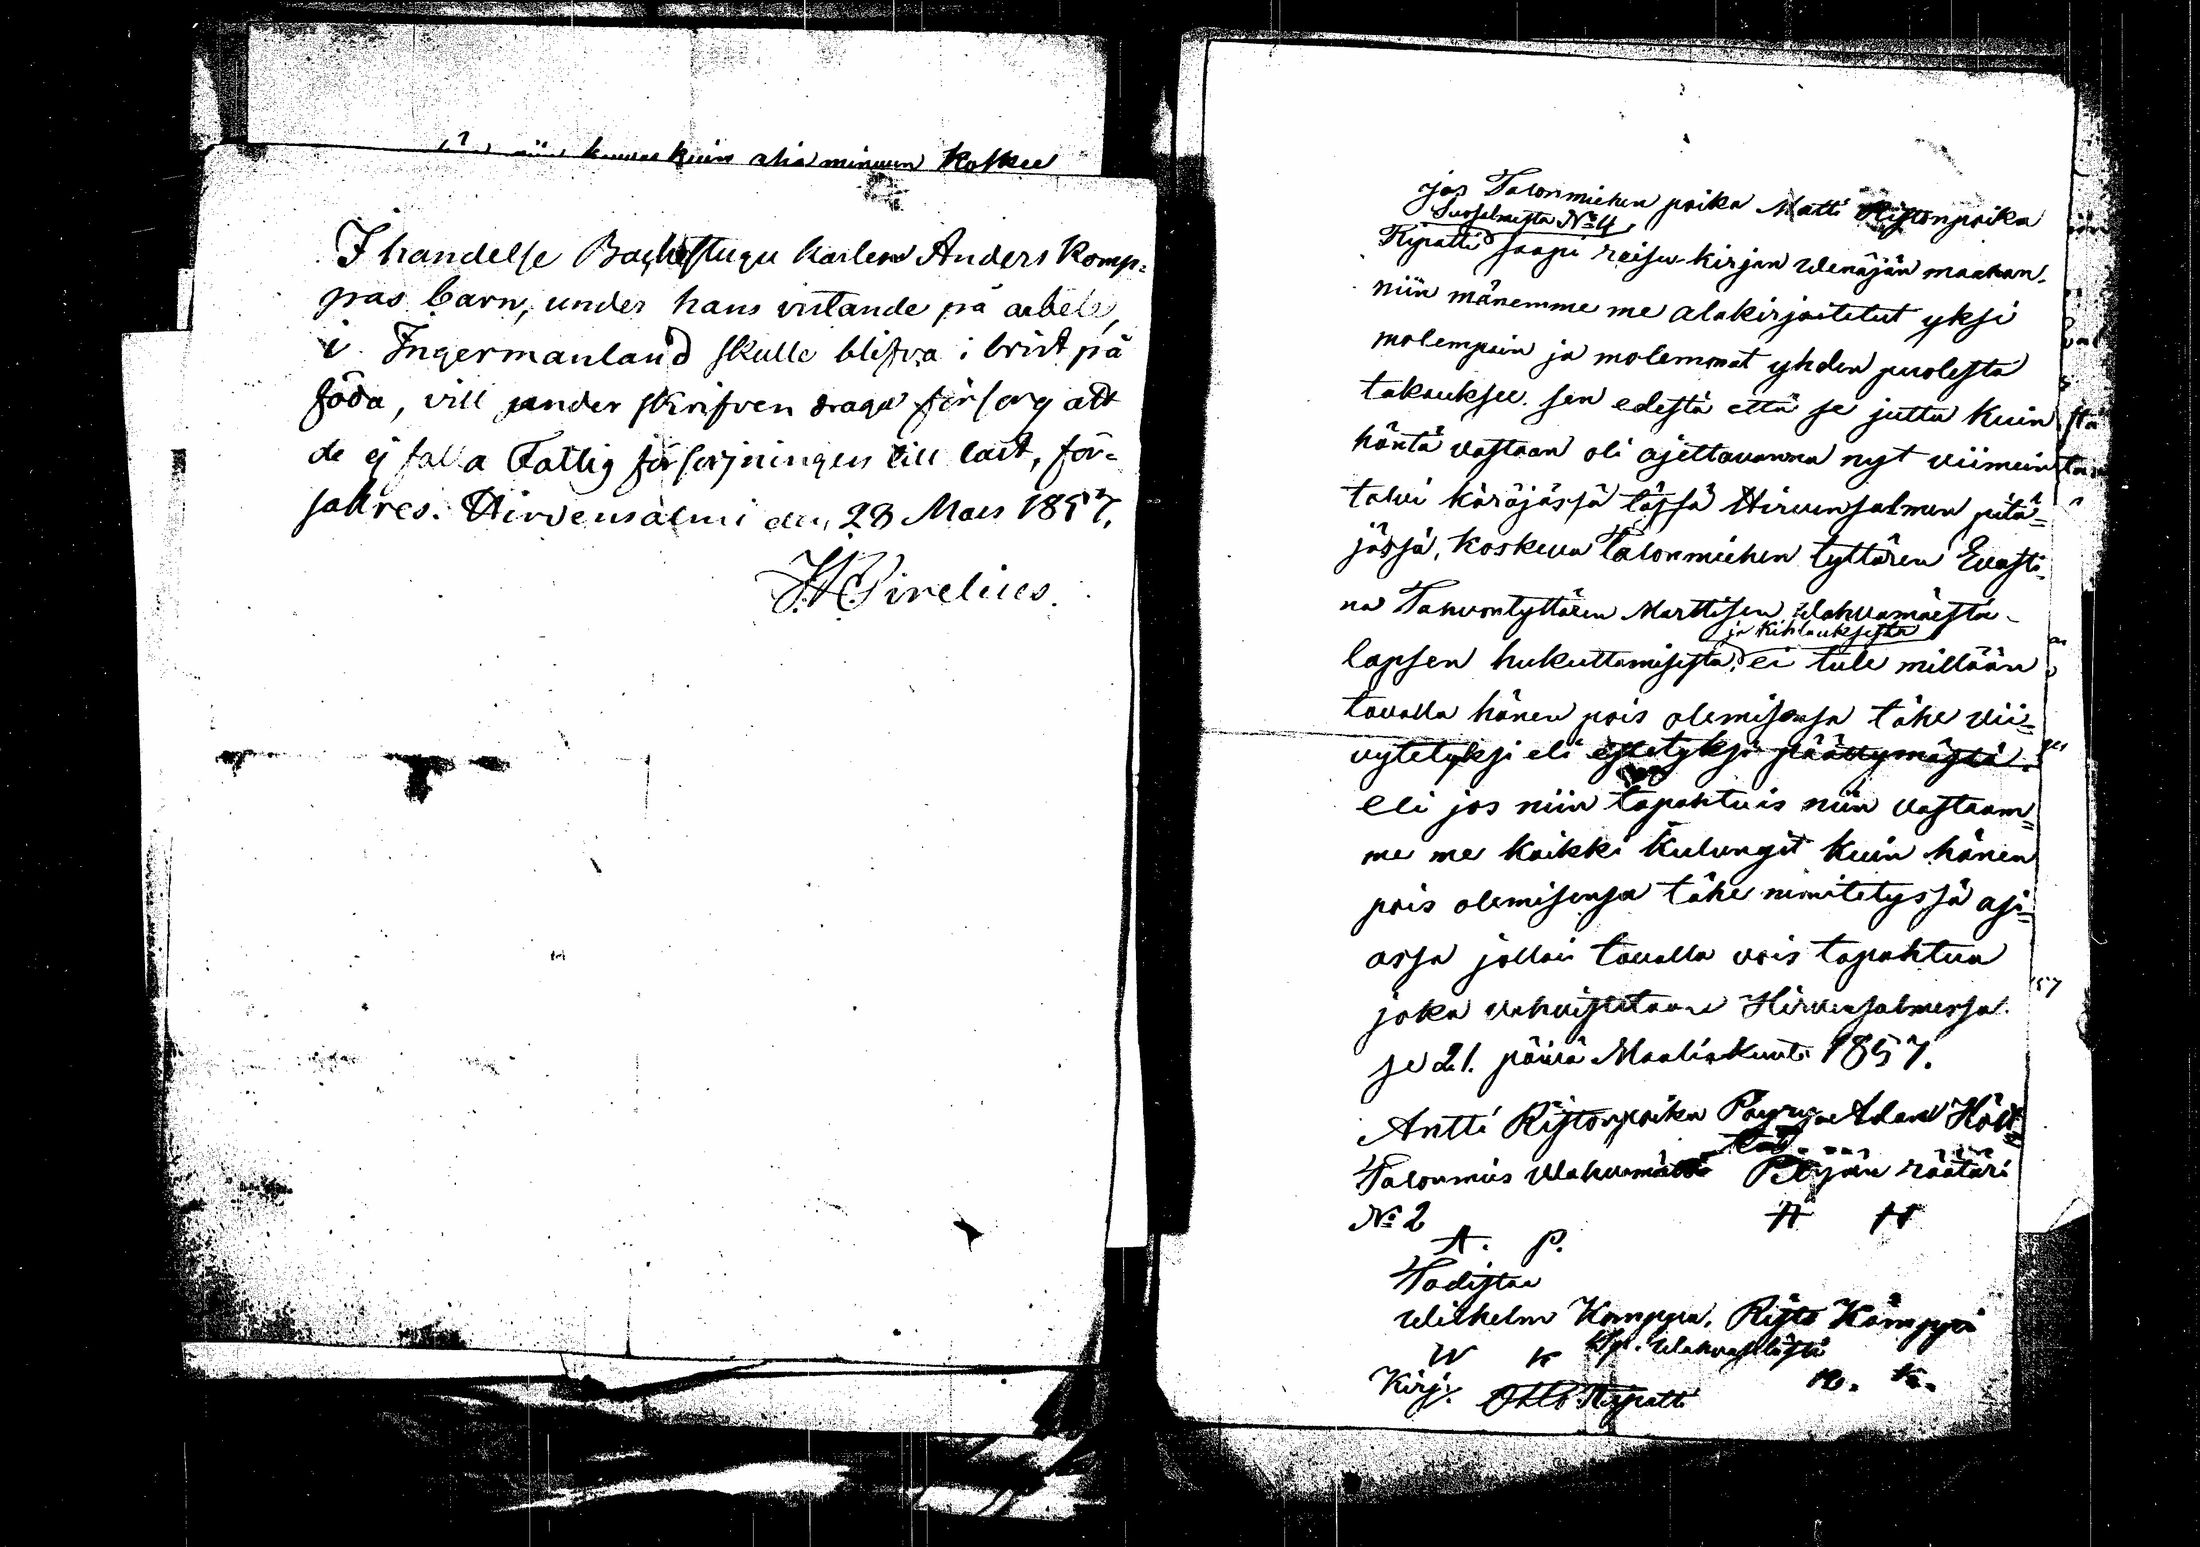 kuin asia minuun koskee
I händelse Backstugu karlen Anders Komp=
pas barn, under hans vistande på arbete,
i Ingermanland skulle blifva i brist på
föda, vill under skrifven draga försorg att
de ej falla Fattig försörjningen till last, för=
säkres. Hirvensalmi den 28 Mars 1857.
jos Talonmiehen poika Matti Ristonpoika
Suosalmesta No 4
Ripatti saapi reisu-kirjan Wenäjän maahan,
niin mänemme me alakirjoitetut yksi
molempain ja molemmat yhden puolesta
takaukseen sen edestä että se jutta kuin
häntä vastaan oli ajettavanna nyt viimein
talvi käräjässä tässä Hirvensalmen pitä=
jässä, koskeva Talonmiehen tyttären Evasti=
na Tahvontyttären Marttisen Wahvamäestä
ja kihlauksesta
lapsen hukuttamisesta, ei tule millään
tavalla hänen pois olemisensa tähe vii=
vytetyksi eli estetyksi päättymästä.
eli jos niin tapahtuis niin vastaam=
me me kaikki kulungit kuin hänen
pois olemisensa tähe nimitetyssä asi=
assa jollain tavalla vois tapahtua
joka vahvistetaan Hirvensalmessa
se 21. päivä Maaliskuuta 1857.
Antti Ristonpoika Adam Höl=
Talonmies Pitäjän räätäri
No 2 A H
A. P.
Todistaa
Wilhelm Komppa, Risto Kämppi
W K
R. K.
Kirj. Otto Ripatti
157